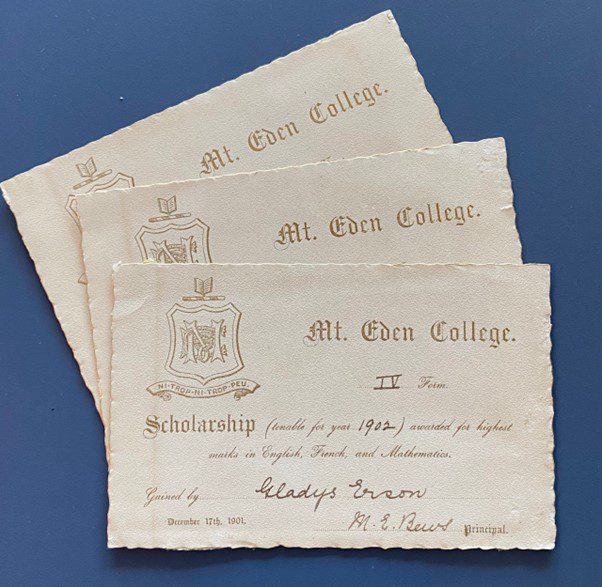 Mt. Eden College.
Mt. Eden College.
Mt. Eden College.
NI·TROP·NI·TROP·PEU.
IV Form.
Scholarship (tenable for year 1902) awarded for highest
marks in English, French, and Mathematics.
Gained by Gladys Erson
December 17th, 1901. M. E. Bews Principal.